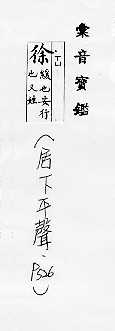 彙音寶鑑
徐緩也安行
也又姓
(居下平聲,P526)